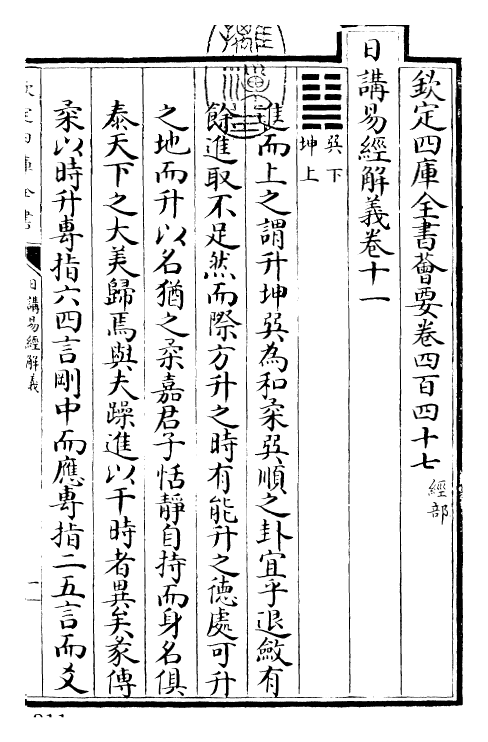 欽定四庫全書薈要卷四百四十七 經部
日講易經解義卷十一
巽下
坤上
進而上之謂升坤巽為和柔巽順之卦宜乎退斂有
餘進取不足然而際方升之時有能升之徳處可升
之地而升以名猶之柔嘉君子恬靜自持而身名俱
泰天下之大美歸焉與夫躁進以干時者異矣彖傳
柔以時升專指六四言剛中而應專指二五言而爻
欽定四庫全書
日講易經解義
一